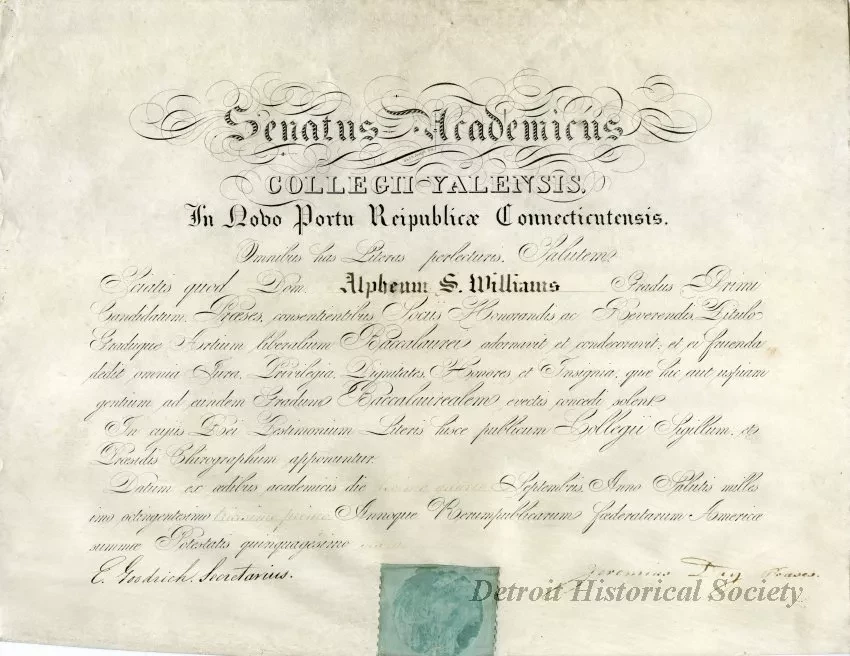 Senatus Academicus
COLLEGII YALENSIS,
In Novo Portu Reipublicæ Connecticutensis.
Omnibus has Literas perlecturis, Salutem
Sciatis quod Dom. Alpheum S. Williams Gradus Primi
Candidatum, Præses, consentientibus Sociis Honorandis ac Reverendis, Titulo
Graduque Artium liberalium Baccalaurei adornavit et condecoravit, et ei fruenda
dedit omnia Jura, Privilegia, Dignitates, Honores, et Insignia, quæ hic aut uspiam
gentium ad eundem Gradum Baccalaurealem evectis concedi solent
In cujus Rei Testimonium Literis hisce publicum Collegii Sigillum, et
Præsidis Chirographum apponuntur.
Datum ex ædibus academicis die Septembris, Anno Salutis milles
imo octingentesimo tricesimo primo Annoque Rerumpublicarum fœderatarum Americæ
summæ Potestatis quinquagesimo
E. Goodrich, Secretarius.
Jeremias Day Præses.
Detroit Historical Society